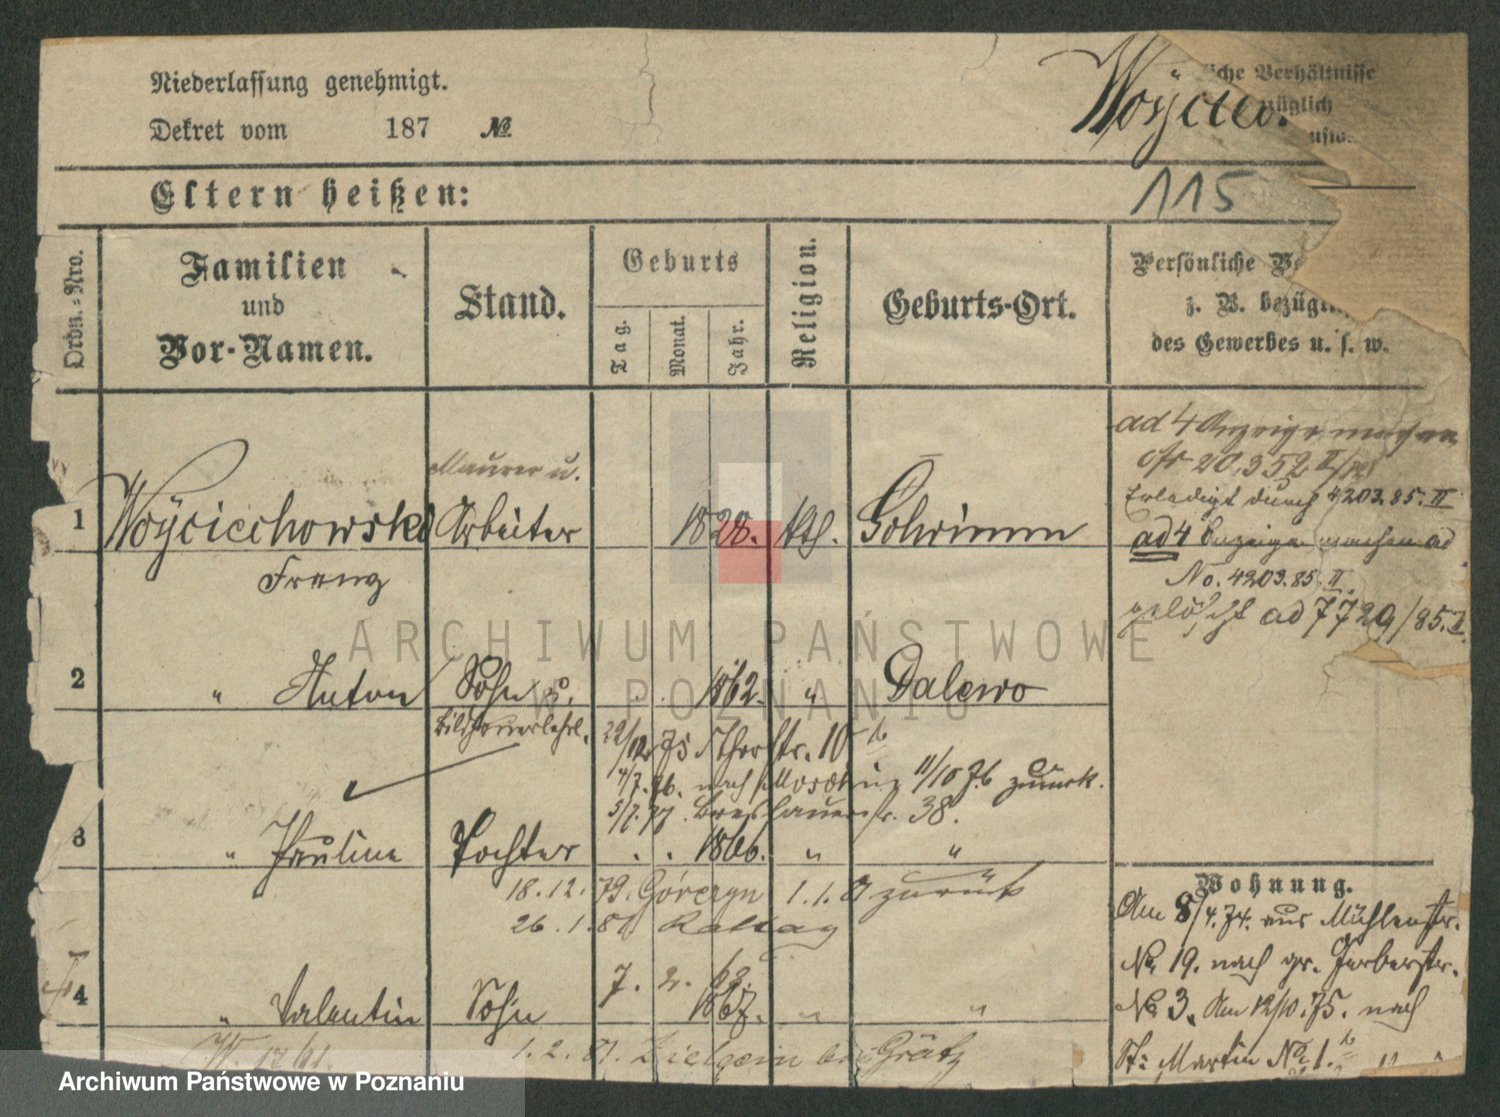 Niederlassung genehmigt.
Dekret vom 187 No
liche Verhältnisse
züglich
usw.
115
Eltern heißen:
Ordn.-Nro.
Familien
und
Vor-Namen.
Stand.
Geburts
Tag.
Monat.
Jahr.
Religion.
Geburts-Ort.
Persönliche Ve
z. B. bezügl
des Gewerbes u. s. w.
ad 4 Anzeige machen
20,352 II
Erledigt durch 4203.85. II
ad 4 Anzeige machen ad
No. 4203.85. II
gelöscht ad 7729/85. II
Maurer u.
1 Woyciechowski Arbeiter 1828. kth. Gohrimm
Franz
2 " Anton Sohn u. 1862. " Dalewo
Bildhauerlehrl.
22/12 75 Thorstr. 10 b
4/7.76. nach 11/10 76 zurück.
5/7.77. Breslauerstr. 38.
3 " Pauline Tochter 1866. " "
18.12.79. Górczyn 1.1.8 zurück
26.1.81 Rattay
4 " Valentin Sohn 7. 2. 68 1867. " "
1.2.81. bei Grätz
W. 1761.
Wohnung.
Am 8/4.74. aus Mühlenstr.
No 19. nach gr. Gerberstr.
No 3. Am 12/10.75. nach
St: Martin No 1. b
ARCHIWUM PAŃSTWOWE
W POZNANIU
Archiwum Państwowe w Poznaniu